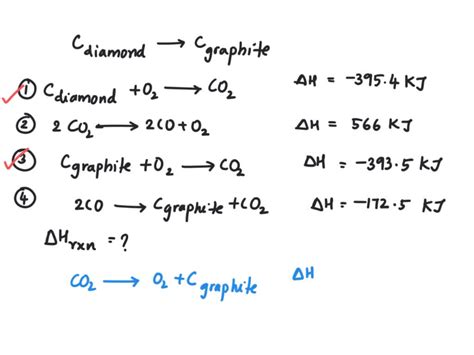 C diamond → C graphite
① C diamond + O₂ → CO₂ ΔH = -395.4 KJ
② 2 CO₂ → 2CO + O₂ ΔH = 566 KJ
③ C graphite + O₂ → CO₂ ΔH = -393.5 KJ
④ 2CO → C graphite + CO₂ ΔH = -172.5 KJ
ΔH rxn = ?
CO₂ → O₂ + C graphite ΔH